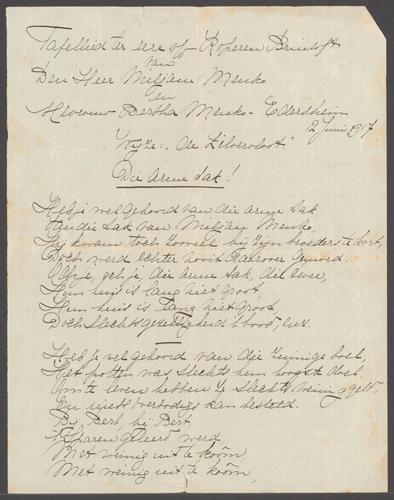 Tafellied ter eere der Koperen Bruiloft
van
Den Heer William Menko
en
Mevrouw Bertha Menko - Edersheim
2 Juni 1917
Wijze: "de Zilvervloot."
Die arme tak!
Heb je wel gehoord van die arme tak,
Van die tak van William Menko,
Hij kwam toch zooveel bij zijn broeders te kort,
Doch werd echter nooit daarover gemord.
die arme tak, die twee,
Hun huis is lang niet groot,
Hun huis is lang niet groot
Doch slechts gezelligheid
Heb je wel gehoord van die zuinige boel,
Het potten was slechts hun hoogste doel,
Om te leven hebben ze slechts weinig geld,
En niets overbodigs kan besteld.
Bij Bert, bij Bert,
't Sparen geleerd werd
Met weinig uit te koom,
Met weinig uit te koom,